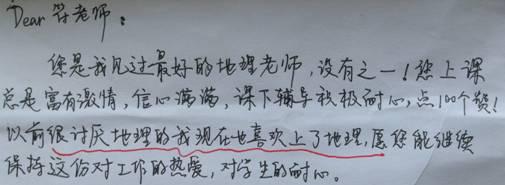 Dear 符老师：
您是我见过最好的地理老师，没有之一！您上课
总是富有激情，信心满满，课下辅导积极耐心，点100个赞！
以前很讨厌地理的我现在也喜欢上了地理，愿您能继续
保持这份对工作的热爱，对学生的耐心。